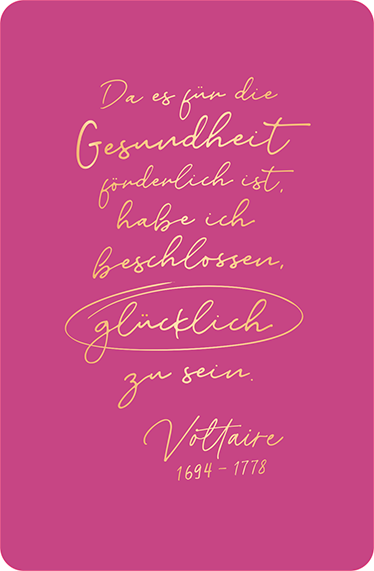 Da es für die
Gesundheit
förderlich ist,
habe ich
beschlossen,
glücklich
zu sein.
Voltaire
1694 – 1778